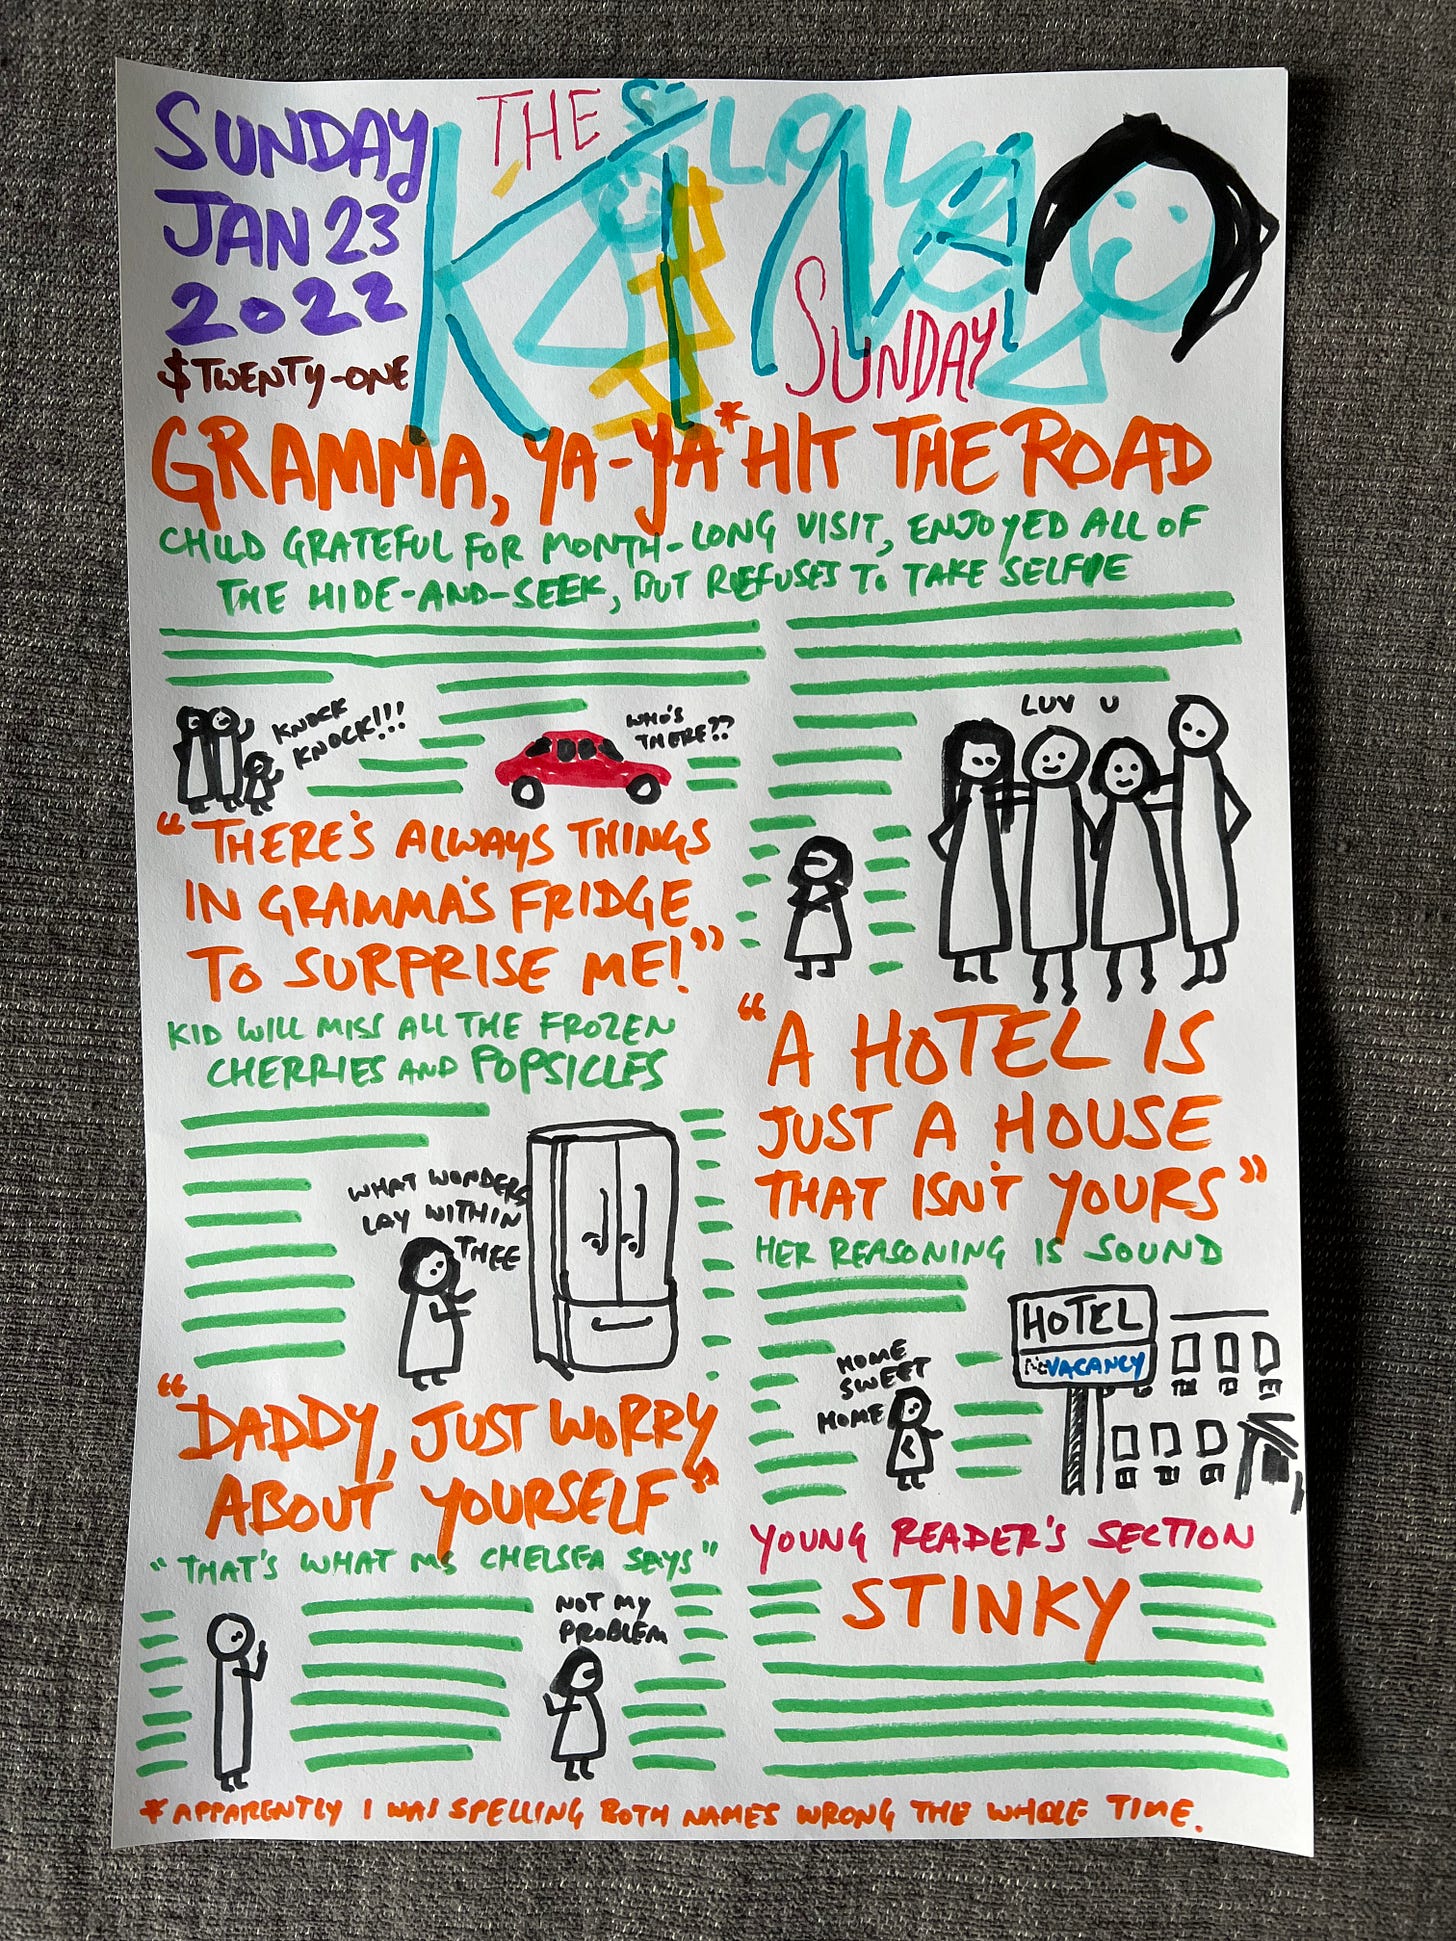 SUNDAY
JAN 23
2022
$TWENTY-ONE
THE
SUNDAY
GRAMMA, YA-YA* HIT THE ROAD
CHILD GRATEFUL FOR MONTH-LONG VISIT, ENJOYED ALL OF
THE HIDE-AND-SEEK, BUT REFUSES TO TAKE SELFIE
KNOCK
KNOCK!!!
WHO'S
THERE??
"THERE'S ALWAYS THINGS
IN GRAMMA'S FRIDGE
TO SURPRISE ME!"
KID WILL MISS ALL THE FROZEN
CHERRIES AND POPSICLES
WHAT WONDERS
LAY WITHIN
THEE
"DADDY, JUST WORRY
ABOUT YOURSELF"
"THAT'S WHAT MS CHELSEA SAYS"
NOT MY
PROBLEM
LUV U
"A HOTEL IS
JUST A HOUSE
THAT ISN'T YOURS"
HER REASONING IS SOUND
HOME
SWEET
HOME
HOTEL
NO VACANCY
YOUNG READER'S SECTION
STINKY
* APPARENTLY I WAS SPELLING BOTH NAMES WRONG THE WHOLE TIME.